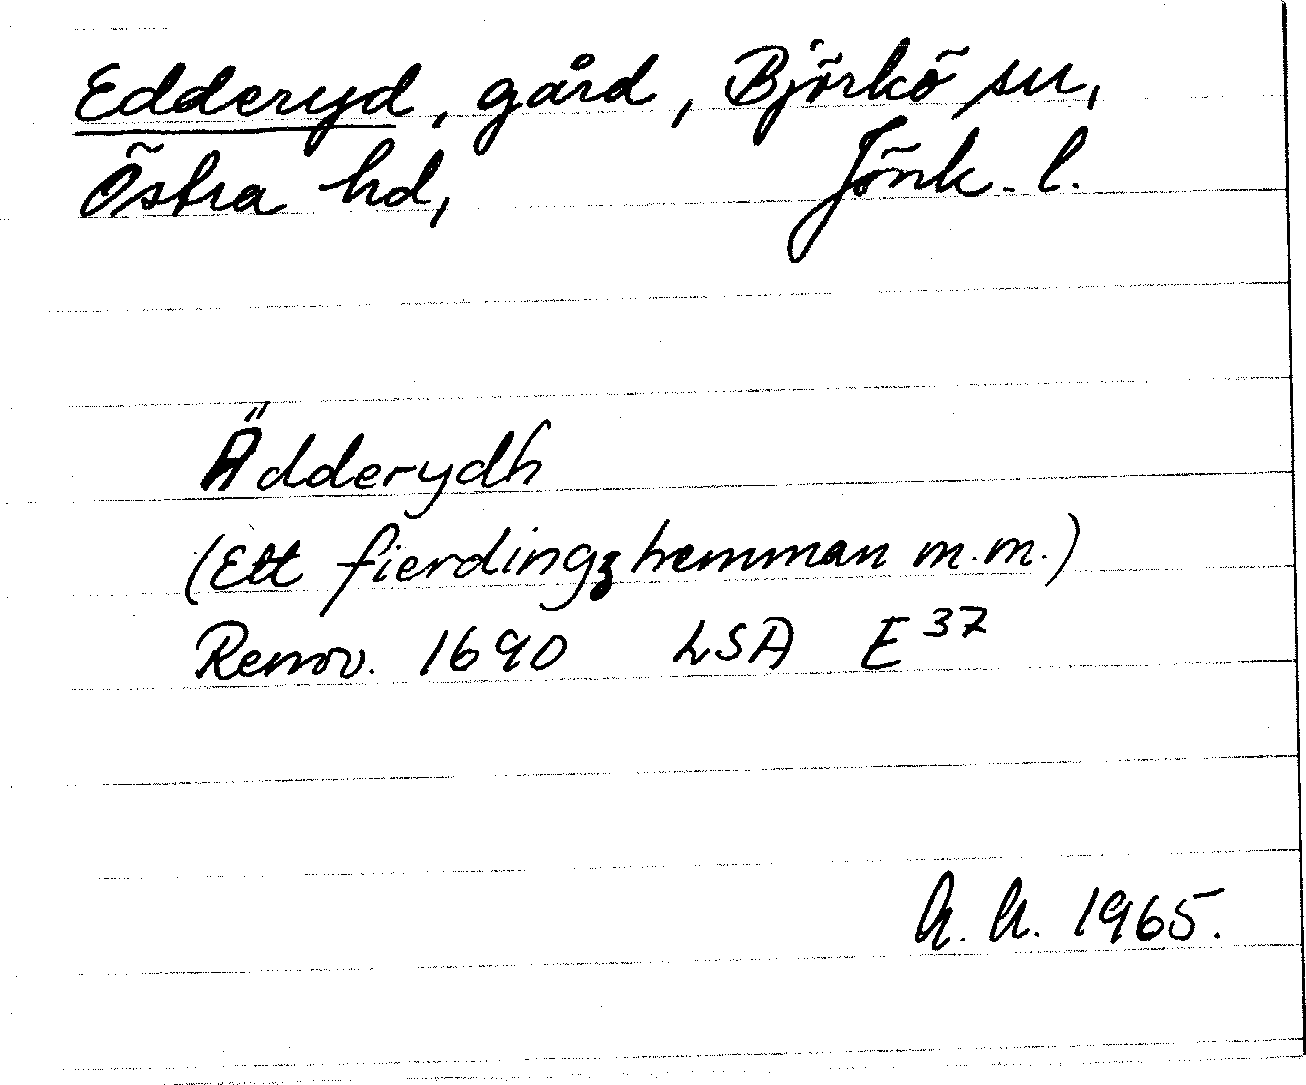 Edderyd, gård, Björkö sn,
Östra hd, Jönk. l.
Ädderydh
(Ett fierdingzhemman m.m.)
Renov. 1690 LSA E 37
A. A. 1965.